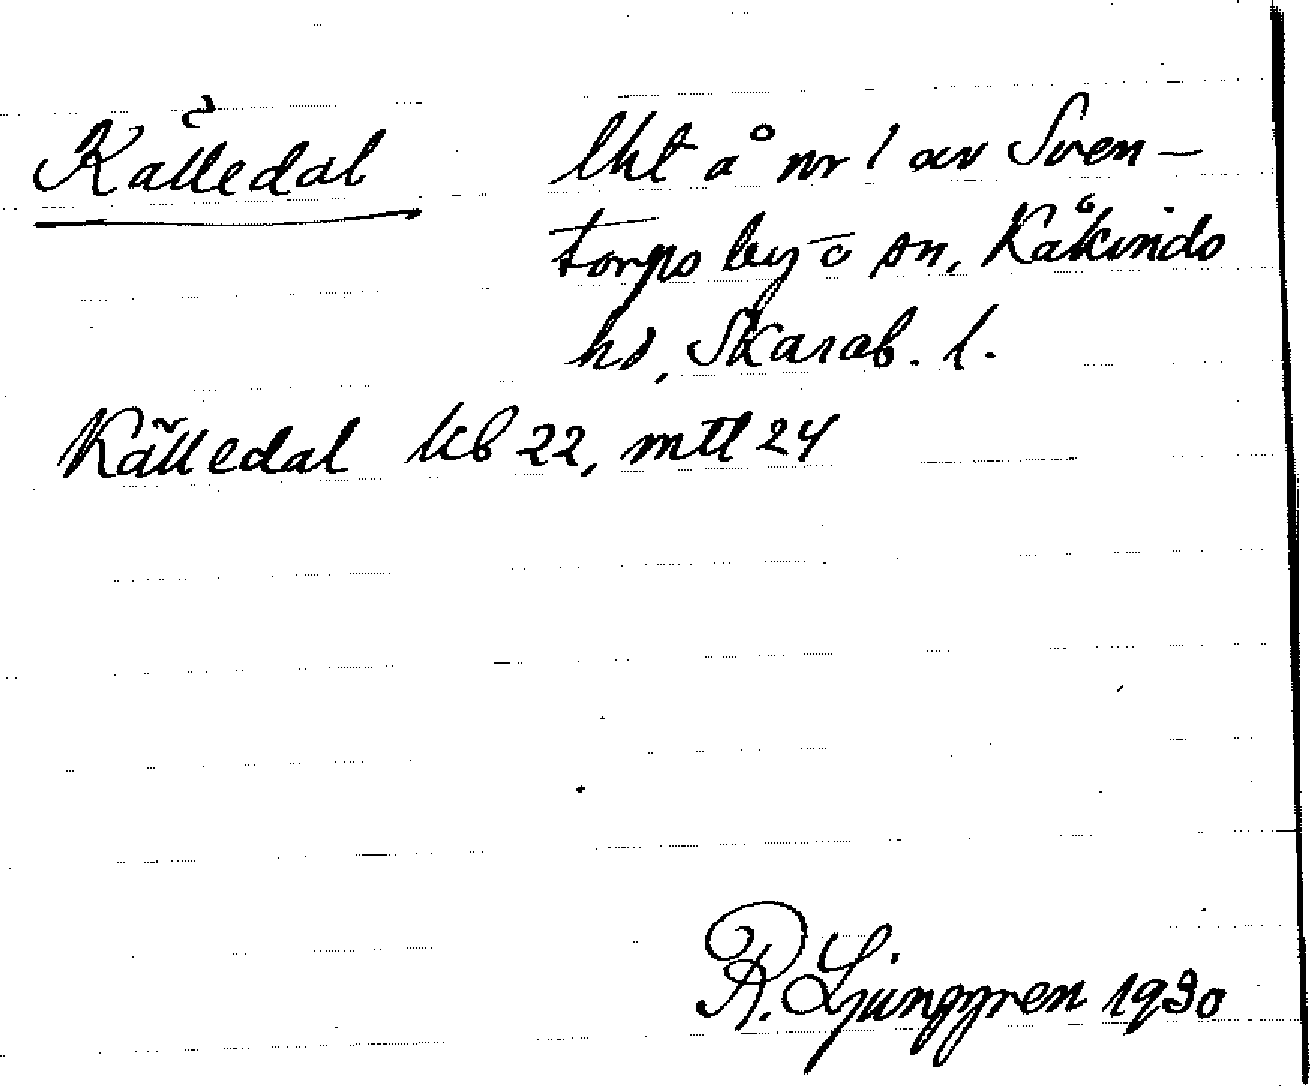 Källedal lht å nr 1 av Sven-
torps by o sn, Kåkinds
hd, Skarab. l.
Källedal kb 22, mtl 24
R. Ljunggren 1930